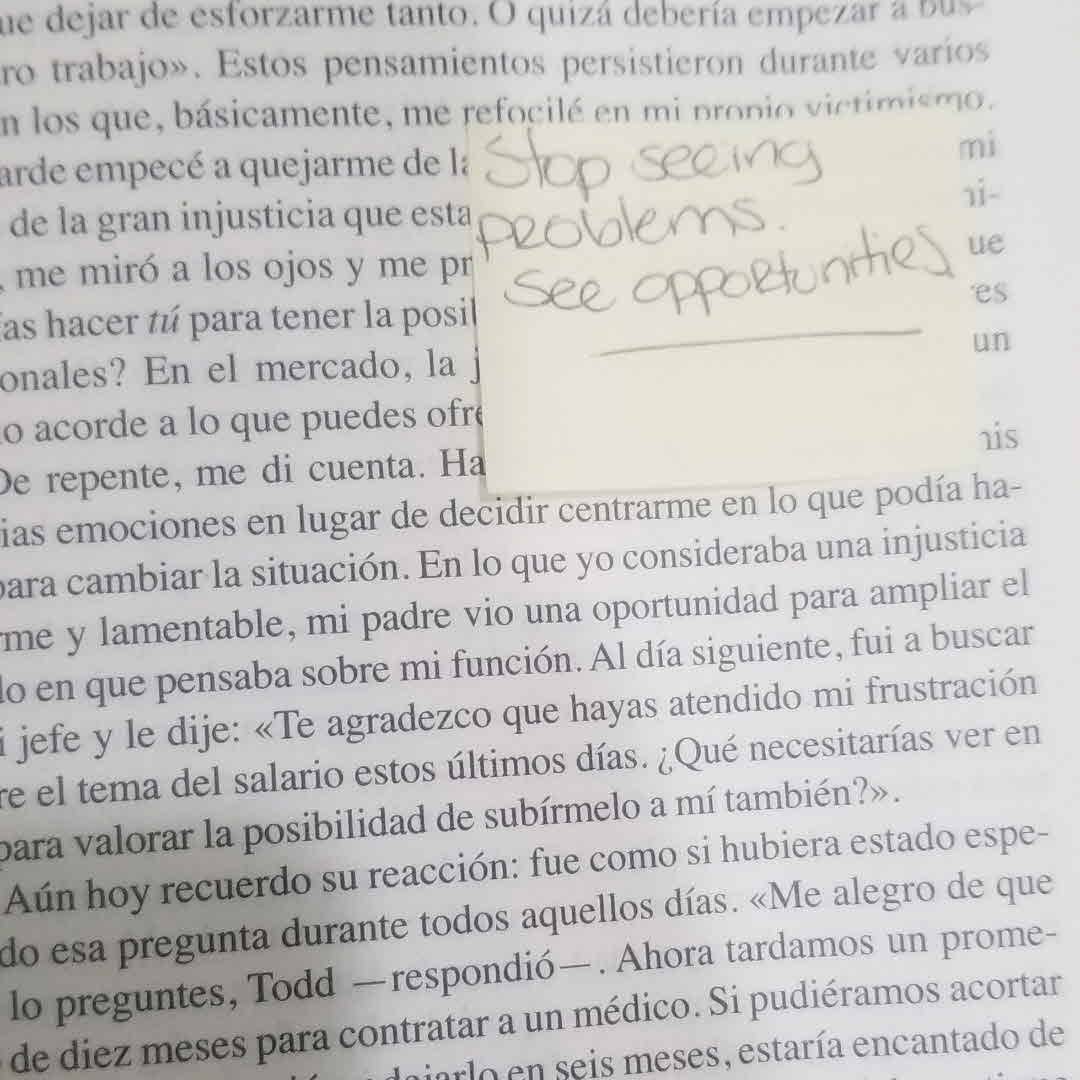 ue dejar de esforzarme tanto. O quizá debería empezar a bus-
ro trabajo». Estos pensamientos persistieron durante varios
n los que, básicamente, me refocilé en mi propio victimismo.
arde empecé a quejarme de la
mi
de la gran injusticia que esta
ni-
, me miró a los ojos y me pr
ue
ías hacer tú para tener la posi
es
onales? En el mercado, la j
un
o acorde a lo que puedes ofre
De repente, me di cuenta. Ha
nis
Stop seeing
problems.
See opportunities
ias emociones en lugar de decidir centrarme en lo que podía ha-
para cambiar la situación. En lo que yo consideraba una injusticia
rme y lamentable, mi padre vio una oportunidad para ampliar el
do en que pensaba sobre mi función. Al día siguiente, fui a buscar
i jefe y le dije: «Te agradezco que hayas atendido mi frustración
re el tema del salario estos últimos días. ¿Qué necesitarías ver en
para valorar la posibilidad de subírmelo a mí también?».
Aún hoy recuerdo su reacción: fue como si hubiera estado espe-
do esa pregunta durante todos aquellos días. «Me alegro de que
lo preguntes, Todd —respondió—. Ahora tardamos un prome-
de diez meses para contratar a un médico. Si pudiéramos acortar
en seis meses, estaría encantado de